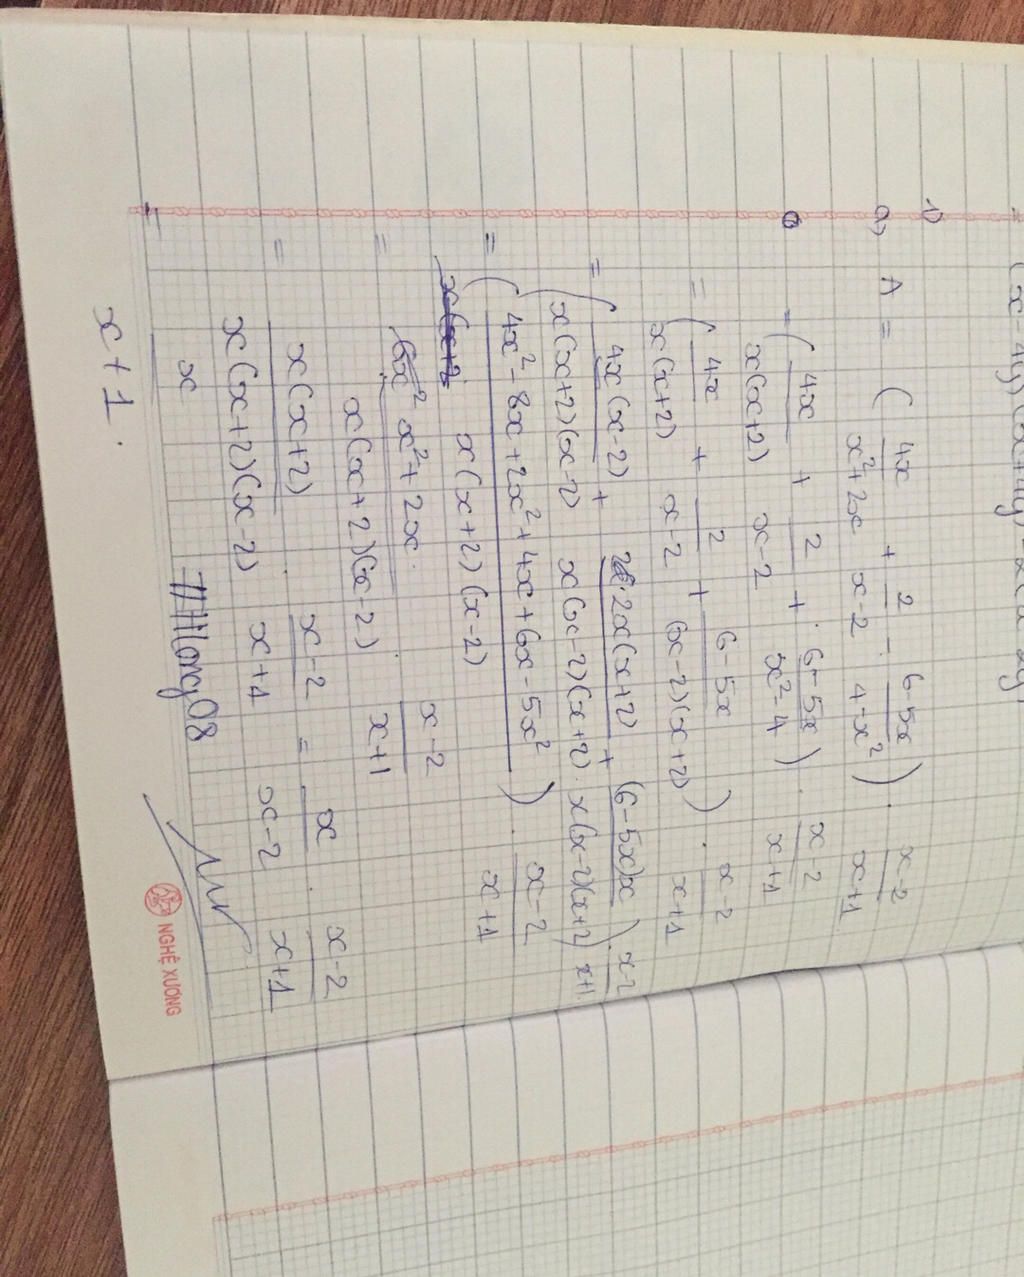 1)
a) A = (4x/x²+2x + 2/x-2 - 6-5x/4-x²) . x-2/x+1
= (4x/x(x+2) + 2/x-2 + 6-5x/x²-4) . x-2/x+1
= (4x/x(x+2) + 2/x-2 + 6-5x/(x-2)(x+2)) . x-2/x+1
= (4x(x-2)/x(x+2)(x-2) + 2x(x+2)/x(x-2)(x+2) + (6-5x)x/x(x-2)(x+2)) . x-2/x+1
= (4x²-8x+2x²+4x+6x-5x²/x(x+2)(x-2)) . x-2/x+1
= x²+2x/x(x+2)(x-2) . x-2/x+1
= x(x+2)/x(x+2)(x-2) . x-2/x+1 = x/x-2 . x-2/x+1
= x/x+1 .
NGHỆ XƯƠNG